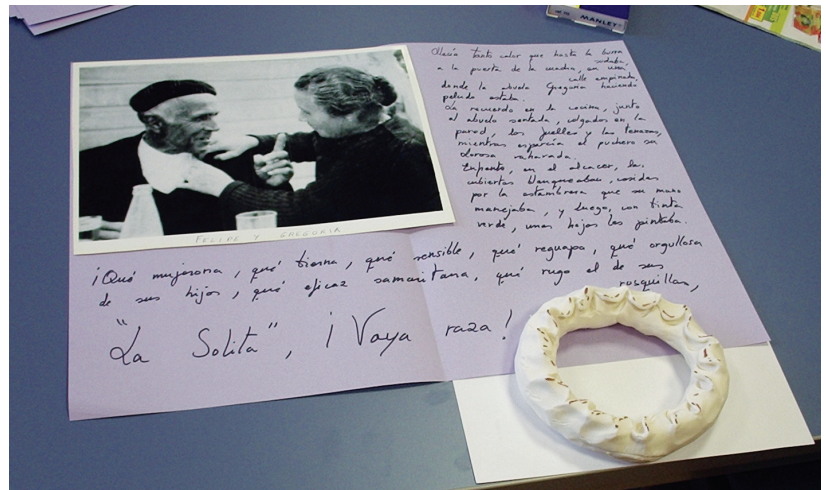 MANLEY
Hacía tanto calor que hasta la burra
sudaba,
a la puerta de la cuadra, en una
calle empinada,
donde la abuela Gregoria haciendo
peludo estaba.
La recuerdo en la cocina, junto
al abuelo sentada, colgados en la
pared, los fuelles y las tenazas,
mientras esparcía el puchero su
olorosa vaharada.
en el alcacer, las
cubiertas blanqueaban, cosidas
por la estambrera que su mano
manejaba, y luego, con tinta
verde, unas hojas las pintaba.
FELIPE Y GREGORIA
¡Qué mujerona, qué tierna, qué sensible, qué reguapa, qué orgullosa
de sus hijos, qué eficaz samaritana, qué rugo el de sus
rosquillas,
"La Solita", ¡Vaya raza!